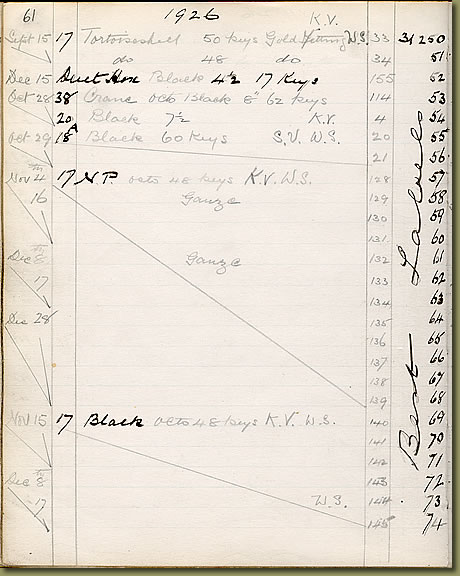 61 1926 K.V.
Sept 15 17 Tortoiseshell 50 Keys Gold W.S. 33 31250
do 48 do 34 51
Dec 15 Duet Box Black 4½ 17 Keys 155 52
Oct 28 38 Crane octo Black 8" 62 Keys 114 53
20 Black 7½ K.V. 4 54
Oct 29 18A Black 60 Keys S.V. W.S. 20 55
21 56
Nov 4th 17 N.P. octo 48 Keys K.V. W.S. 128 57
16 Gauze 129 58
130 59
131 60
Dec 8th Gauze 132 61
17 133 62
134 63
Dec 28 135 64
136 65
137 66
138 67
139 68
Nov 15 17 Black octo 48 Keys K.V. W.S. 140 69
141 70
142 71
Dec 8th 143 72
17 W.S. 144 73
145 74
Best Labels